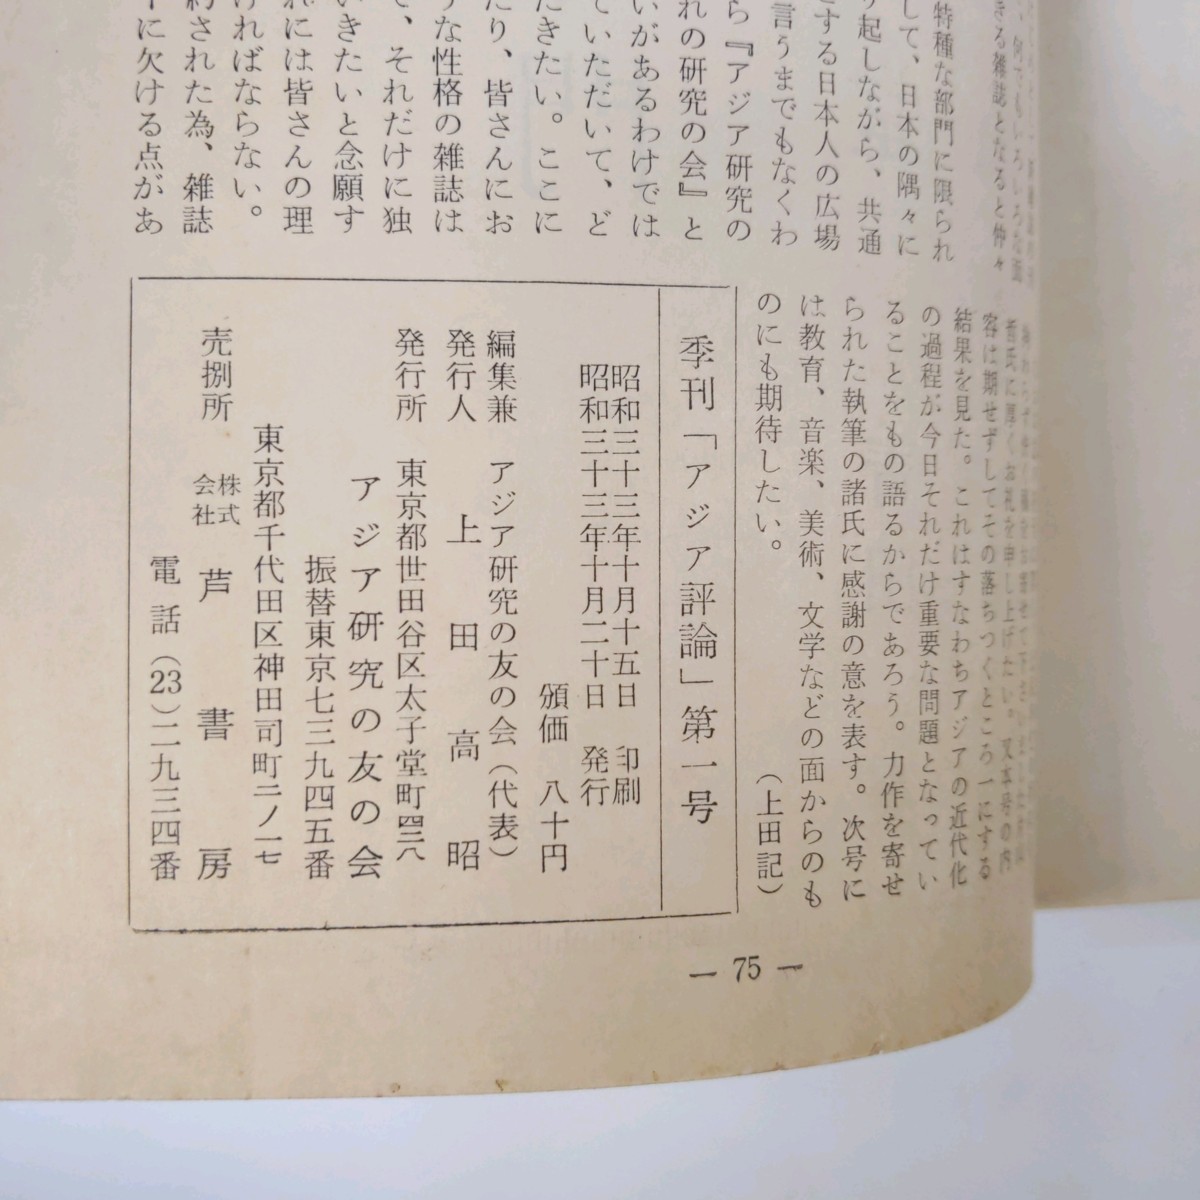 きる雑誌となると仲々
特種な部門に限られ
して、日本の隅々に
り起しながら、共通
とする日本人の広場
言うまでもなくわ
ら『アジア研究の
れの研究の会』と
いがあるわけでは
ていただいて、ど
たきたい。ここに
たり、皆さんにお
うな性格の雑誌は
て、それだけに独
いきたいと念願す
れには皆さんの理
ければならない。
約された為、雑誌
に欠ける点があ
哲氏に厚くお礼を申し上げたい。又本号の内
容は期せずしてその落ちつくところ一にする
結果を見た。これはすなわちアジアの近代化
の過程が今日それだけ重要な問題となってい
ることをもの語るからであろう。力作を寄せ
られた執筆の諸氏に感謝の意を表す。次号に
は教育、音楽、美術、文学などの面からのも
のにも期待したい。　　　　　（上田記）
季刊「アジア評論」第一号
昭和三十三年十月十五日　印刷
昭和三十三年十月二十日　発行
頒価　八十円
編集兼　アジア研究の友の会（代表）
発行人　上田高昭
発行所　東京都世田谷区太子堂町四三八
アジア研究の友の会
振替東京七三九四五番
東京都千代田区神田司町二ノ一七
売捌所　株式会社　芦書房
電話（23）二九三四番
― 75 ―